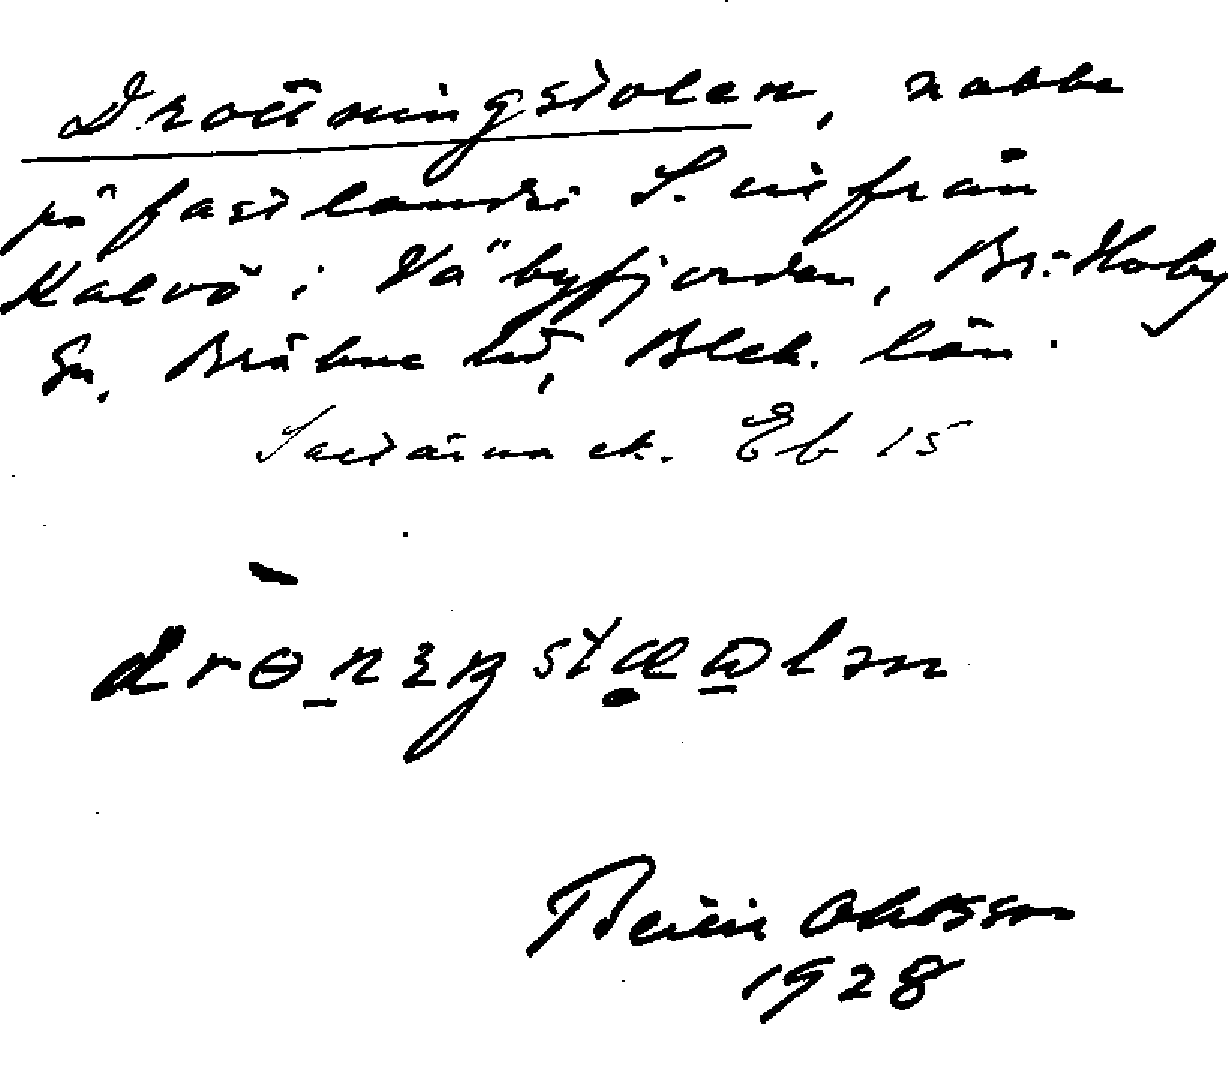 Drottningstolen, nabbe
på fastlandet S. ut från
Kalvö i Väbyfjorden, Br.-Hoby
sn, Bräkne hd, Blek. län.
Saltärna ek. Eb 15
drɵnɪŋstæωlən
Bertil Ohlsson
1928